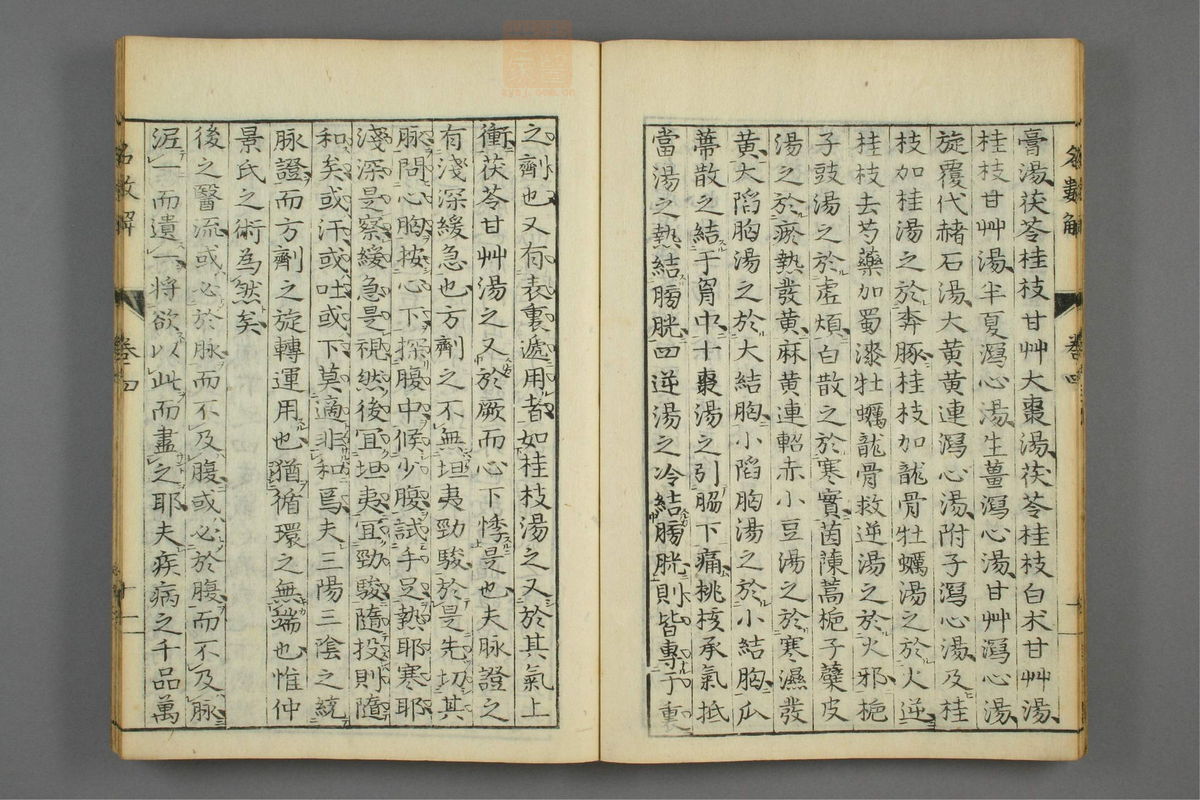 膏湯茯苓桂枝甘艸大棗湯茯苓桂枝白朮甘艸湯
桂枝甘艸湯半夏瀉心湯生薑瀉心湯甘艸瀉心湯
旋覆代赭石湯大黃黃連瀉心湯附子瀉心湯及桂
枝加桂湯之於奔豚桂枝加龍骨牡蠣湯之於火逆
桂枝去芍藥加蜀漆牡蠣龍骨救逆湯之於火邪梔
子豉湯之於虛煩白散之於寒實茵蔯蒿梔子蘗皮
湯之於瘀熱發黃麻黃連軺赤小豆湯之於寒濕發
黃大陷胸湯之於大結胸小陷胸湯之於小結胸瓜
蒂散之結于胷中十棗湯之引脇下痛桃核承氣抵
當湯之熱結膀胱四逆湯之冷結膀胱則皆專于裏
之劑也又有表裏遞用者如桂枝湯之又於其氣上
衝茯苓甘艸湯之又於厥而心下悸是也夫脉證之
有淺深緩急也方劑之不無坦夷勁駿於是先切其
脉問心胸按心下探腹中候少腹試手足熱耶寒耶
淺深是察緩急是視然後宜坦夷宜勁駿隨投則隨
和矣或汗或吐或下莫適非和焉夫三陽三陰之統
脉證而方劑之旋轉運用也猶循環之無端也惟仲
景氏之術為然矣
後之醫流或必於脉而不及腹或必於腹而不及脉
泥一而遺一將欲以此而盡之耶夫疾病之千品萬
名數解
卷四
十二
名數解
卷四